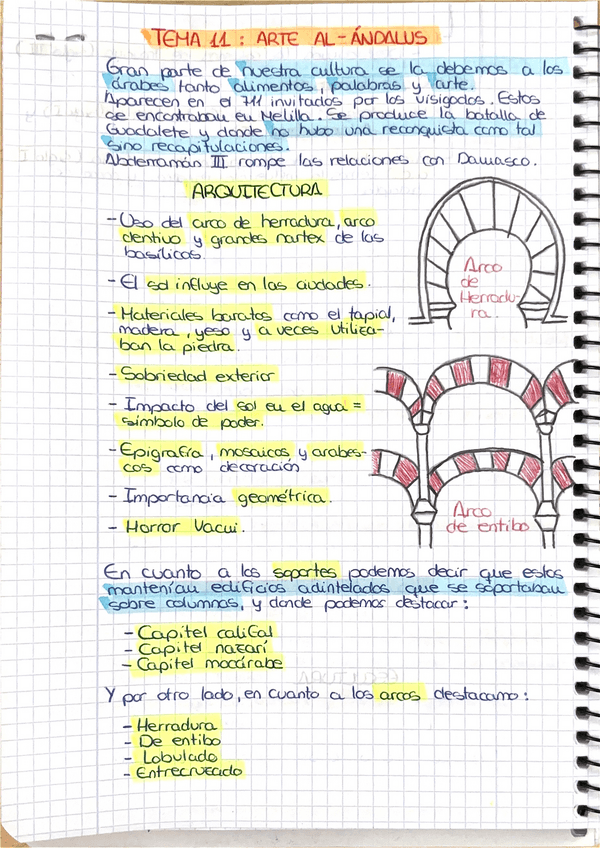 TEMA 11 : ARTE AL-ÁNDALUS
Gran parte de nuestra cultura se la debemos a los
árabes tanto alimentos, palabras y arte.
Aparecen en el 711 invitados por los visigodos. Estos
se encontraban en Melilla. Se produce la batalla de
Guadalete y donde no hubo una reconquista como tal
sino recapitulaciones.
Abderramán III rompe las relaciones con Damasco.
ARQUITECTURA
- Uso del arco de herradura, arco
dentivo y grandes nartex de las
basílicas.
- El sol influye en las ciudades.
- Materiales baratos como el tapial,
madera, yeso y a veces utiliza-
ban la piedra.
- Sobriedad exterior
- Impacto del sol en el agua =
símbolo de poder.
- Epigrafía, mosaicos y arabes-
cos como decoración
- Importancia geométrica.
- Horror Vacui.
Arco
de
Herradu-
ra.
Arco
de entibo
En cuanto a los soportes podemos decir que estos
mantenían edificios adintelados que se soportaban
sobre columnas, y donde podemos destacar:
- Capitel califal
- Capitel nazarí
- Capitel mocárabe
Y por otro lado, en cuanto a los arcos destacamo:
- Herradura
- De entibo
- Lobulado
- Entrecruzado